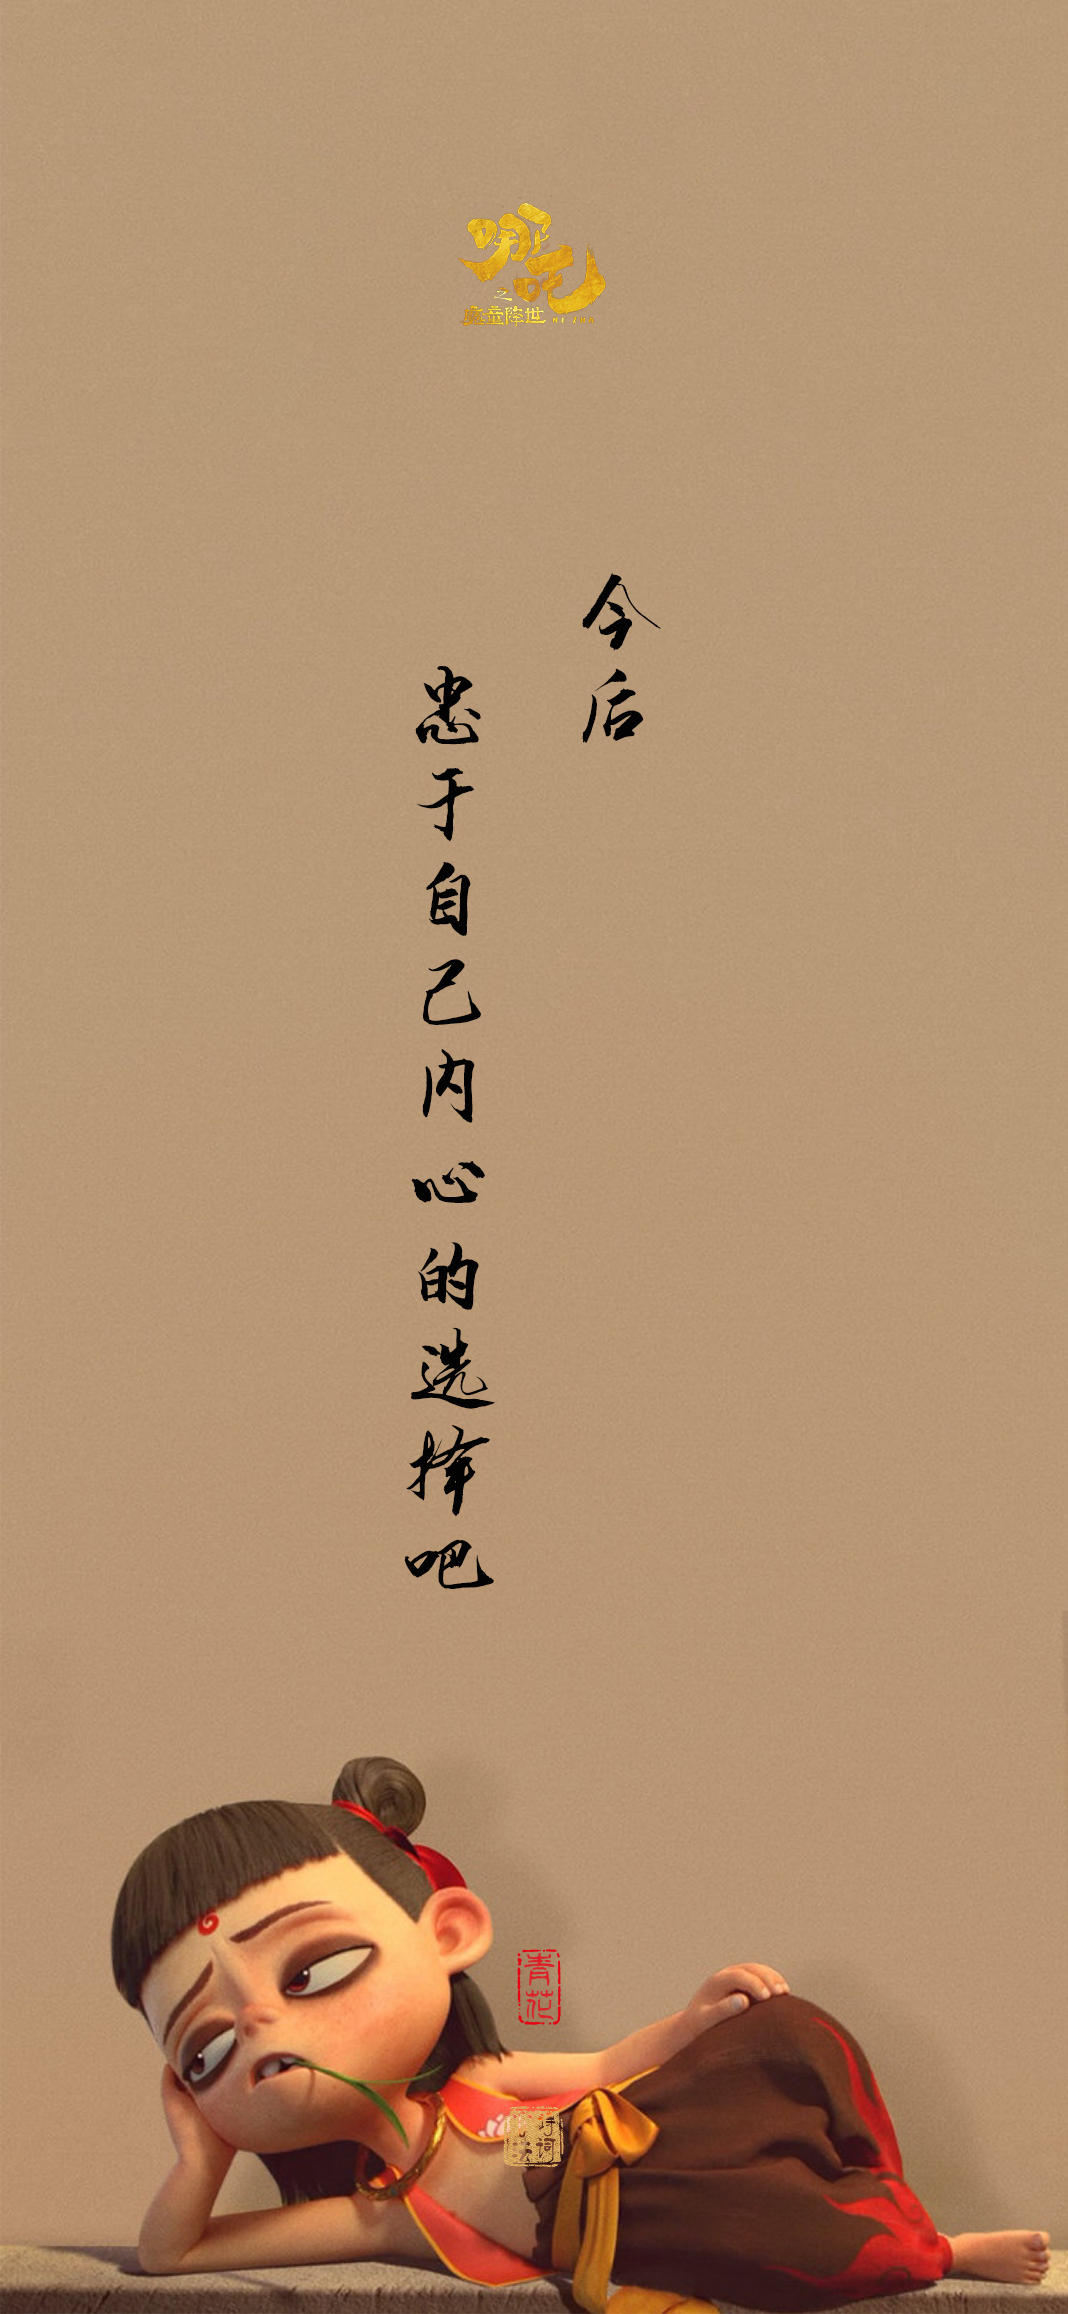 哪吒
之
魔童降世
今后
忠于自己内心的选择吧
青花
诗词